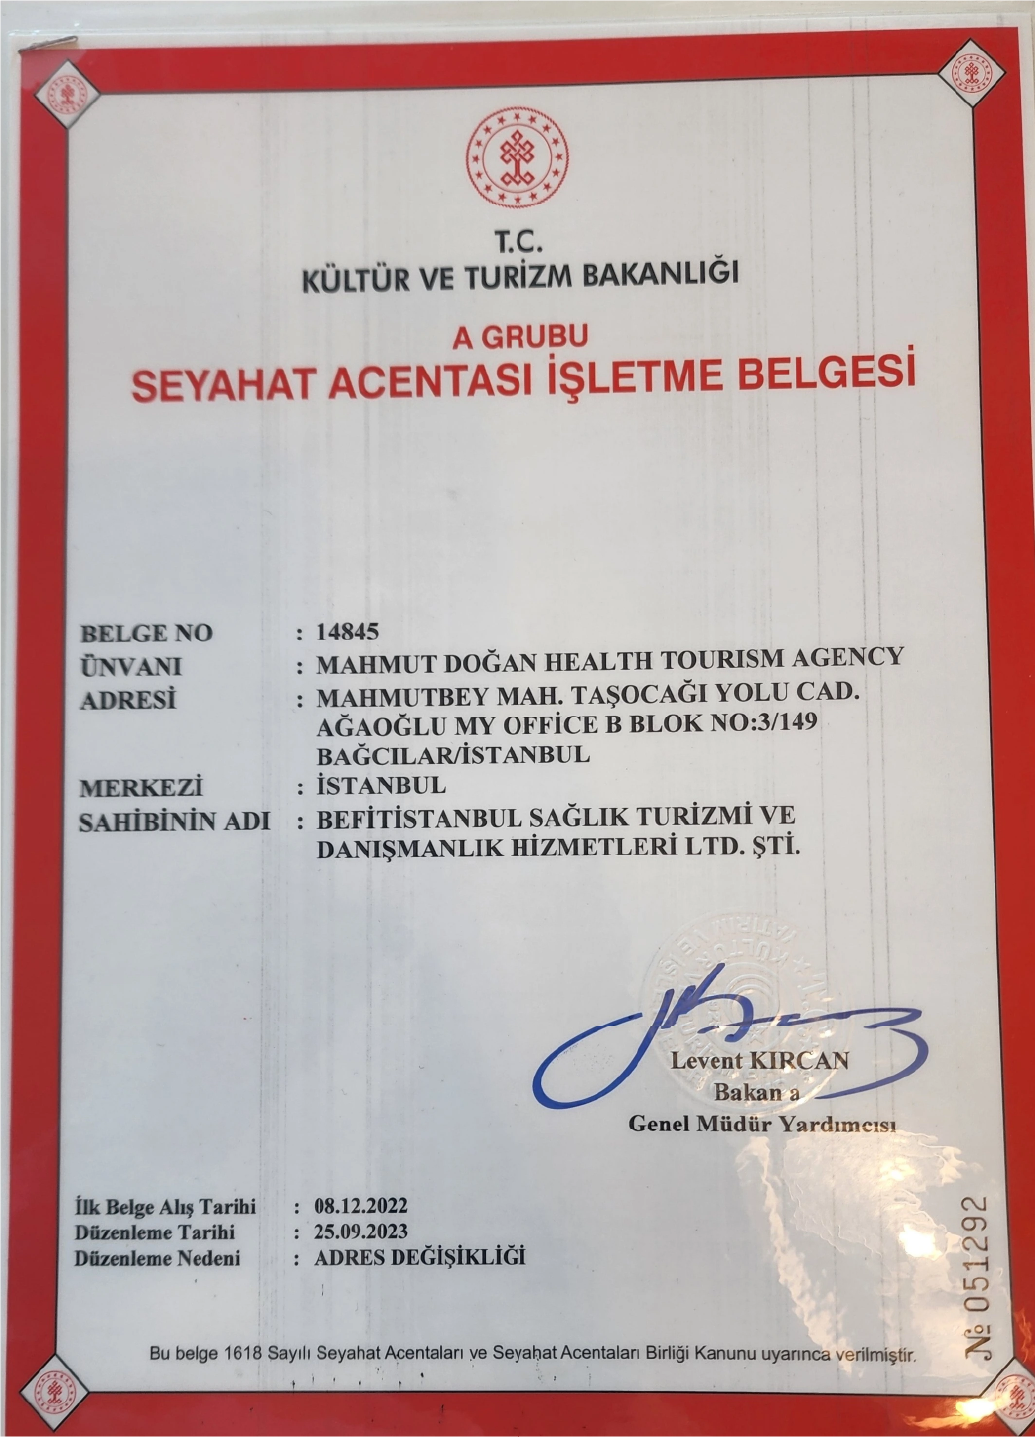 T.C.
KÜLTÜR VE TURİZM BAKANLIĞI
A GRUBU
SEYAHAT ACENTASI İŞLETME BELGESİ
BELGE NO : 14845
ÜNVANI : MAHMUT DOĞAN HEALTH TOURISM AGENCY
ADRESİ : MAHMUTBEY MAH. TAŞOCAĞI YOLU CAD.
AĞAOĞLU MY OFFİCE B BLOK NO:3/149
BAĞCILAR/İSTANBUL
MERKEZİ : İSTANBUL
SAHİBİNİN ADI : BEFİTİSTANBUL SAĞLIK TURİZMİ VE
DANIŞMANLIK HİZMETLERİ LTD. ŞTİ.
Levent KIRCAN
Bakan a
Genel Müdür Yardımcısı
İlk Belge Alış Tarihi : 08.12.2022
Düzenleme Tarihi : 25.09.2023
Düzenleme Nedeni : ADRES DEĞİŞİKLİĞİ
№ 051292
Bu belge 1618 Sayılı Seyahat Acentaları ve Seyahat Acentaları Birliği Kanunu uyarınca verilmiştir.